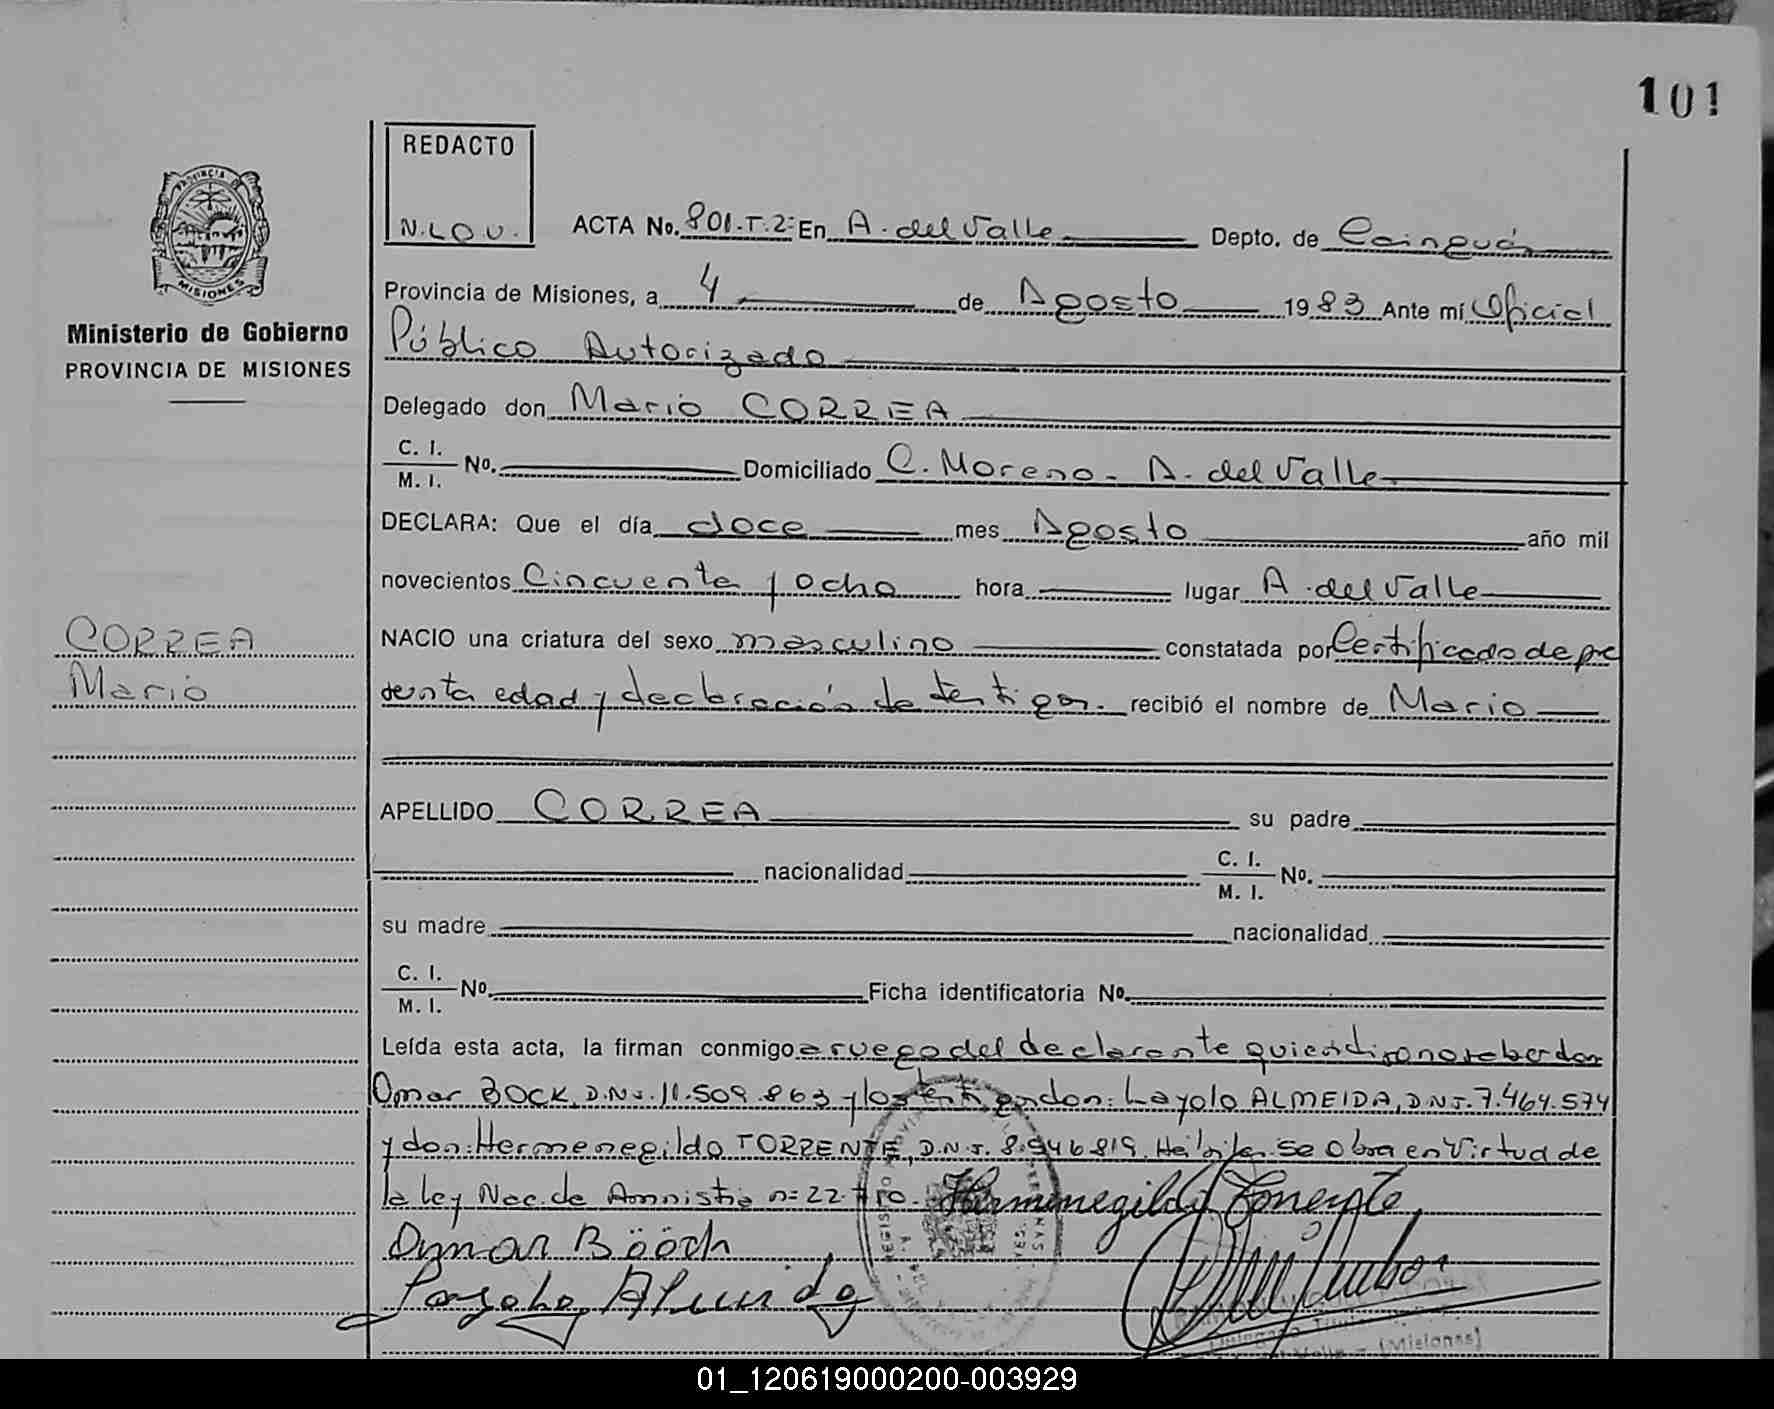 101
REDACTO
N.L.O.U.
PROVINCIA DE
MISIONES
Ministerio de Gobierno
PROVINCIA DE MISIONES
ACTA No. 801.T.2:En A. del Valle Depto. de Cainguás
Provincia de Misiones, a 4 de Agosto 1983 Ante mí Oficial
Público Autorizado
Delegado don Mario CORREA
C. I.
M. I. No. Domiciliado C. Moreno - A. del Valle
DECLARA: Que el día doce mes Agosto año mil
novecientos Cincuenta y ocho hora lugar A. del Valle
CORREA
Mario
NACIO una criatura del sexo masculino constatada por Certificado de pre
sunta edad y declaración de testigos. recibió el nombre de Mario
APELLIDO CORREA su padre
nacionalidad C. I.
M. I. No.
su madre nacionalidad
C. I.
M. I. No. Ficha identificatoria No.
Leída esta acta, la firman conmigo a ruego del declarante quien dijo no saber don
Omar BOCK, D.N.I. 11.509.863 y los testigos don: Layolo ALMEIDA, D.N.I. 7.464.574
y don: Hermenegildo TORRENTE, D.N.I. 8.546.819. Hábiles. Se Obra en Virtud de
la Ley Nac. de Amnistia n= 22.710.
(Misiones)
01_120619000200-003929